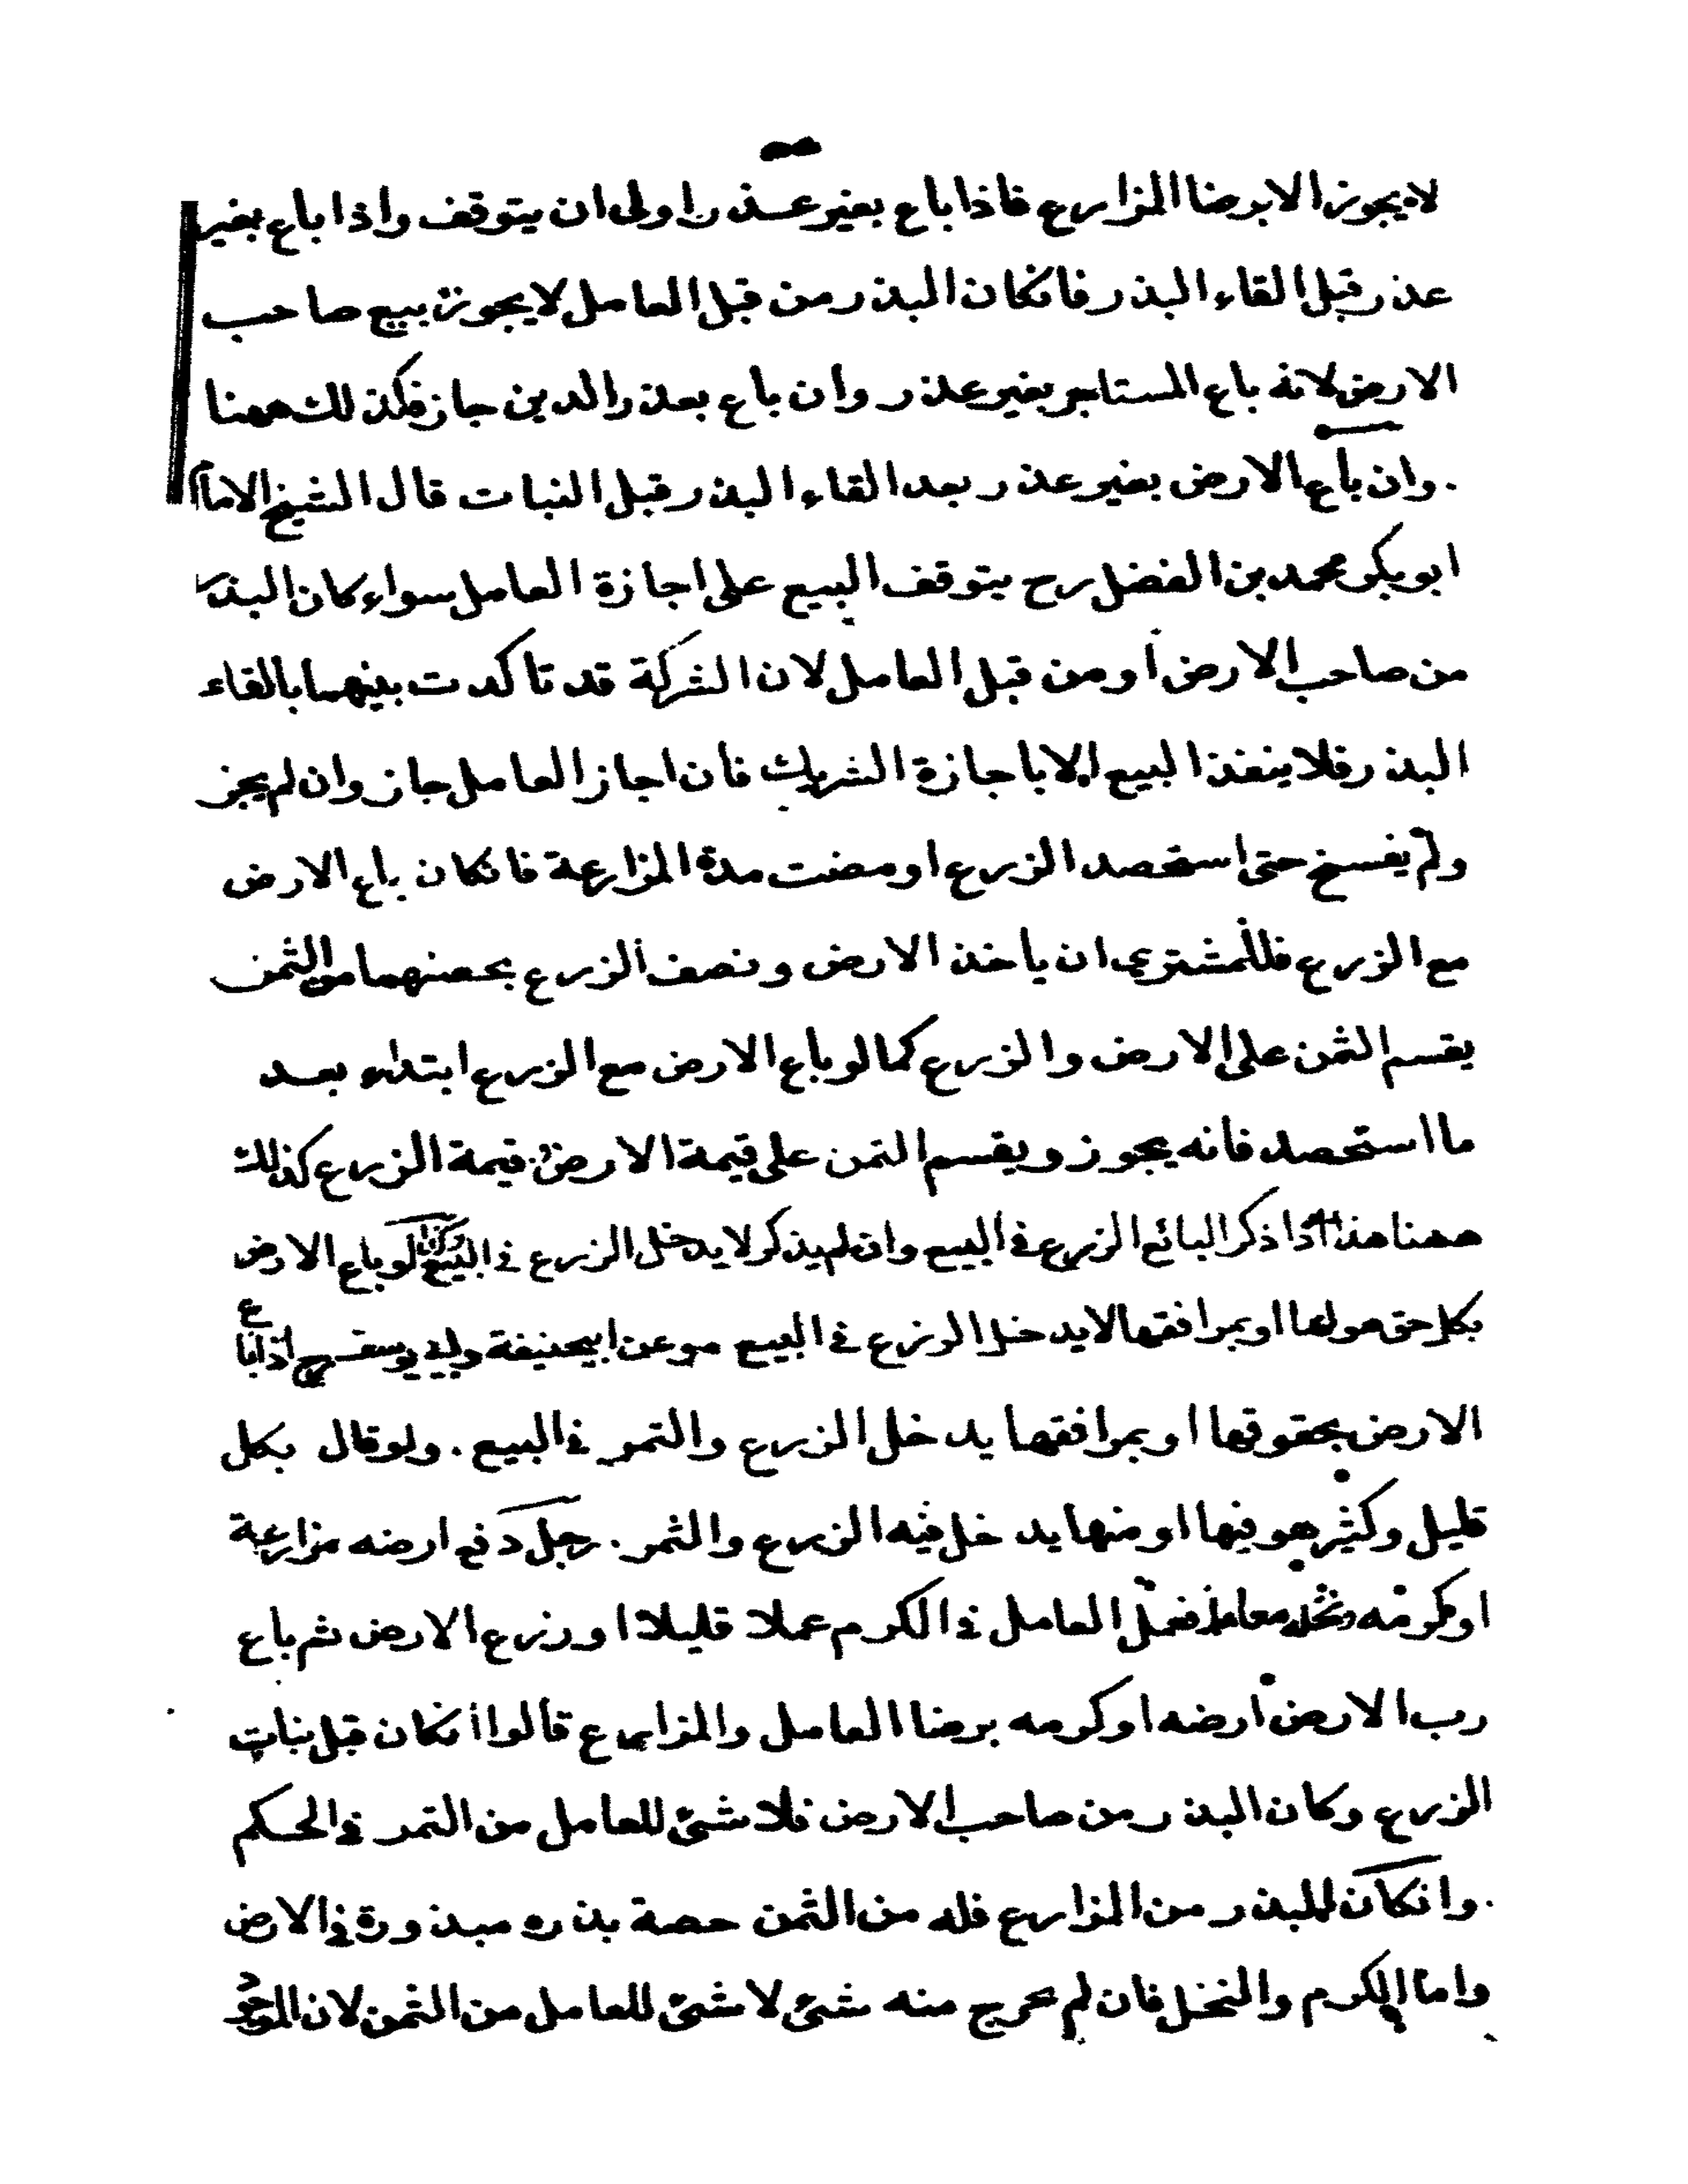 لا يجوز الا برضا المزارع فاذا باع بغير عذر اولى ان يتوقف واذا باع بغير
عذر قبل القاء البذر فانكان البذر من قبل العامل لا يجوز بيع صاحب
الارض لانه باع المستاجر بغير عذر وان باع بعذر الدين جاز فكذلك ههنا
. وان باع الارض بغير عذر بعد القاء البذر قبل النبات قال الشيخ الامام
ابو بكر محمد بن الفضل رح يتوقف البيع على اجازة العامل سواء كان البذر
من صاحب الارض او من قبل العامل لان الشركة قد تاكدت بينهما بالقاء
البذر فلا ينفذ البيع الا باجازة الشريك فان اجاز العامل جاز وان لم يجز
ولم يفسخ حتى استحصد الزرع او مضت مدة المزارعة فانكان باع الارض
مع الزرع فللمشتري ان ياخذ الارض ونصف الزرع بحصتهما من الثمن
يقسم الثمن على الارض والزرع كما لو باع الارض مع الزرع ابتداء بعد
ما استحصد فانه يجوز ويقسم الثمن على قيمة الارض وقيمة الزرع كذلك
ههنا هذا اذا ذكر البائع الزرع في البيع وان لم يذكر لا يدخل الزرع في البيع وكذا لو باع الارض
بكل حق هو لها او بمرافقها لا يدخل الزرع في البيع وعن ابيحنيفة وابي يوسف رح اذا باع
الارض بحقوقها او بمرافقها يدخل الزرع والثمر في البيع . ولو قال بكل
قليل وكثير هو فيها او منها يدخل فيه الزرع والثمر . رجل دفع ارضه مزارعة
او كرمه ونخله معاملة فعمل العامل في الكرم عملا قليلا او زرع الارض ثم باع
رب الارض ارضه او كرمه برضا العامل والمزارع قالوا انكان قبل نبات
الزرع وكان البذر من صاحب الارض فلا شئ للعامل من الثمر في الحكم
. وانكان البذر من المزارع فله من الثمن حصة بذره مبذورة في الارض
واما الكرم والنخل فان لم يخرج منه شئ لا شئ للعامل من الثمن لان الموجود